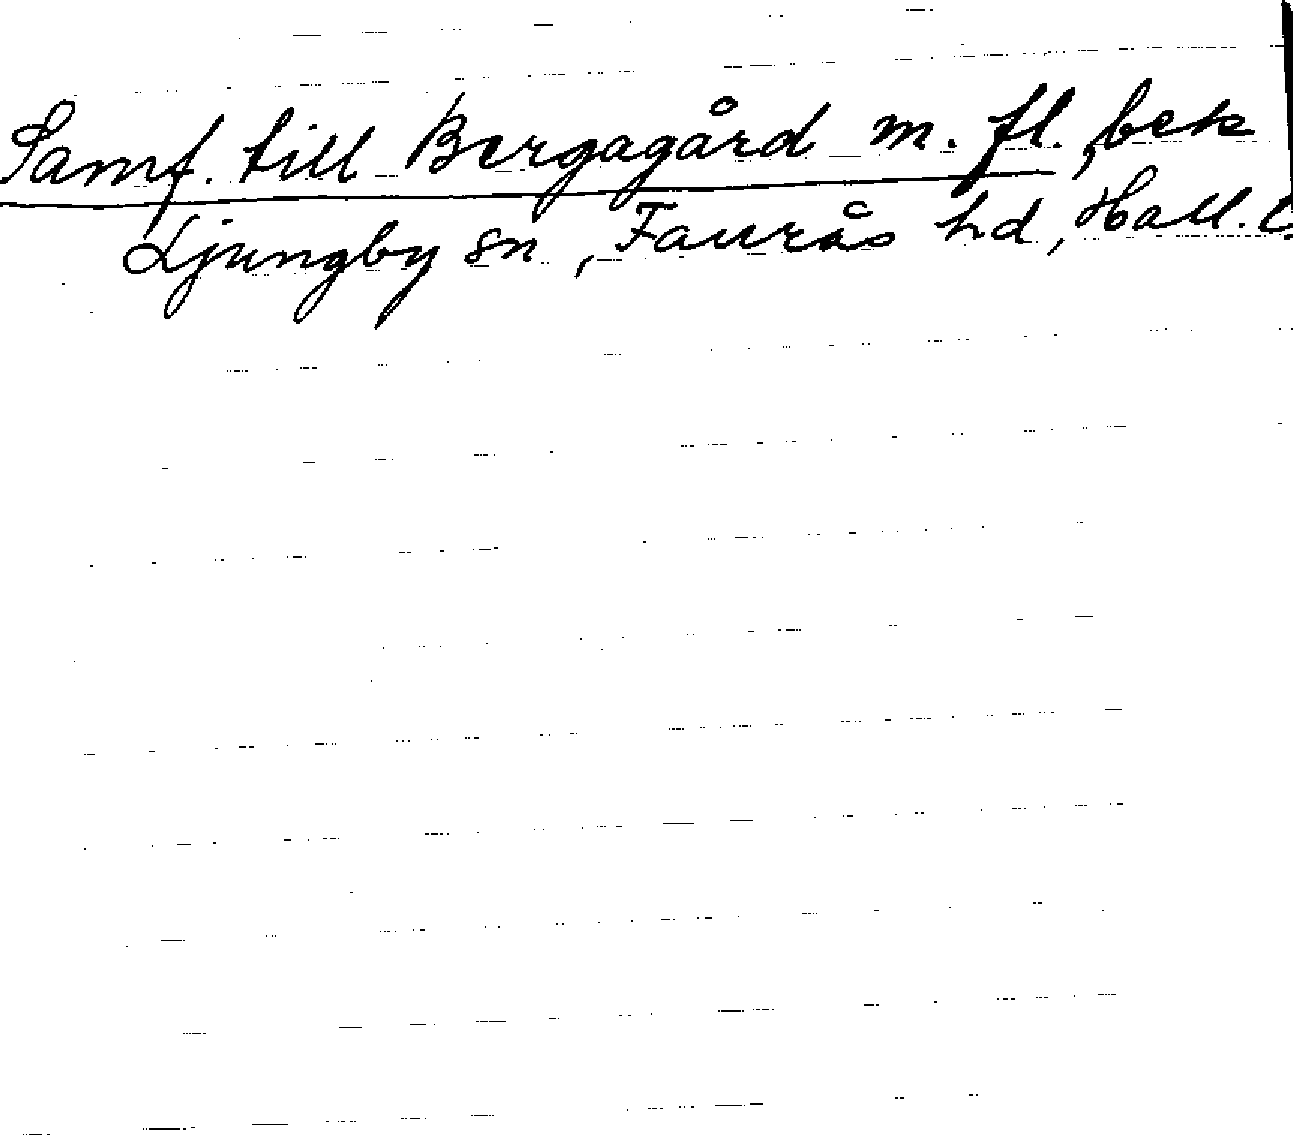 Samf. till Bergagård m. fl., bek
Ljungby sn, Faurås hd, Hall. l.